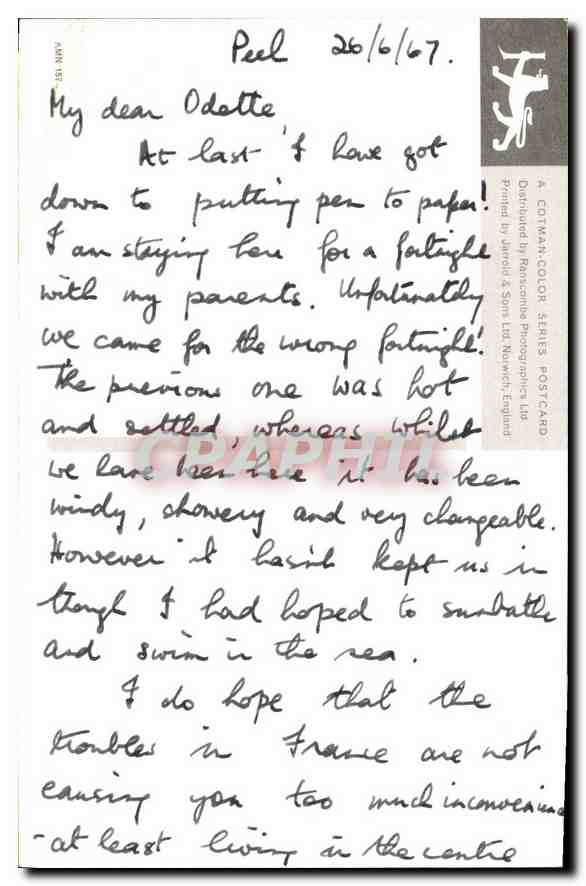 Peel 26/6/67.
My dear Odette,
At last I have got
down to putting pen to paper!
I am staying here for a fortnight
with my parents. Unfortunately
we came for the wrong fortnight!
The previous one was hot
and settled, whereas whilst
we have been here it has been
windy, showery and very changeable.
However it hasn't kept us in
though I had hoped to sunbathe
and swim in the sea.
I do hope that the
troubles in France are not
causing you too much inconvenience
- at least living in the centre
A COTMAN-COLOR SERIES POSTCARD
Distributed by Ranscombe Photographics Ltd
Printed by Jarrold & Sons Ltd, Norwich, England
CPAPHIL